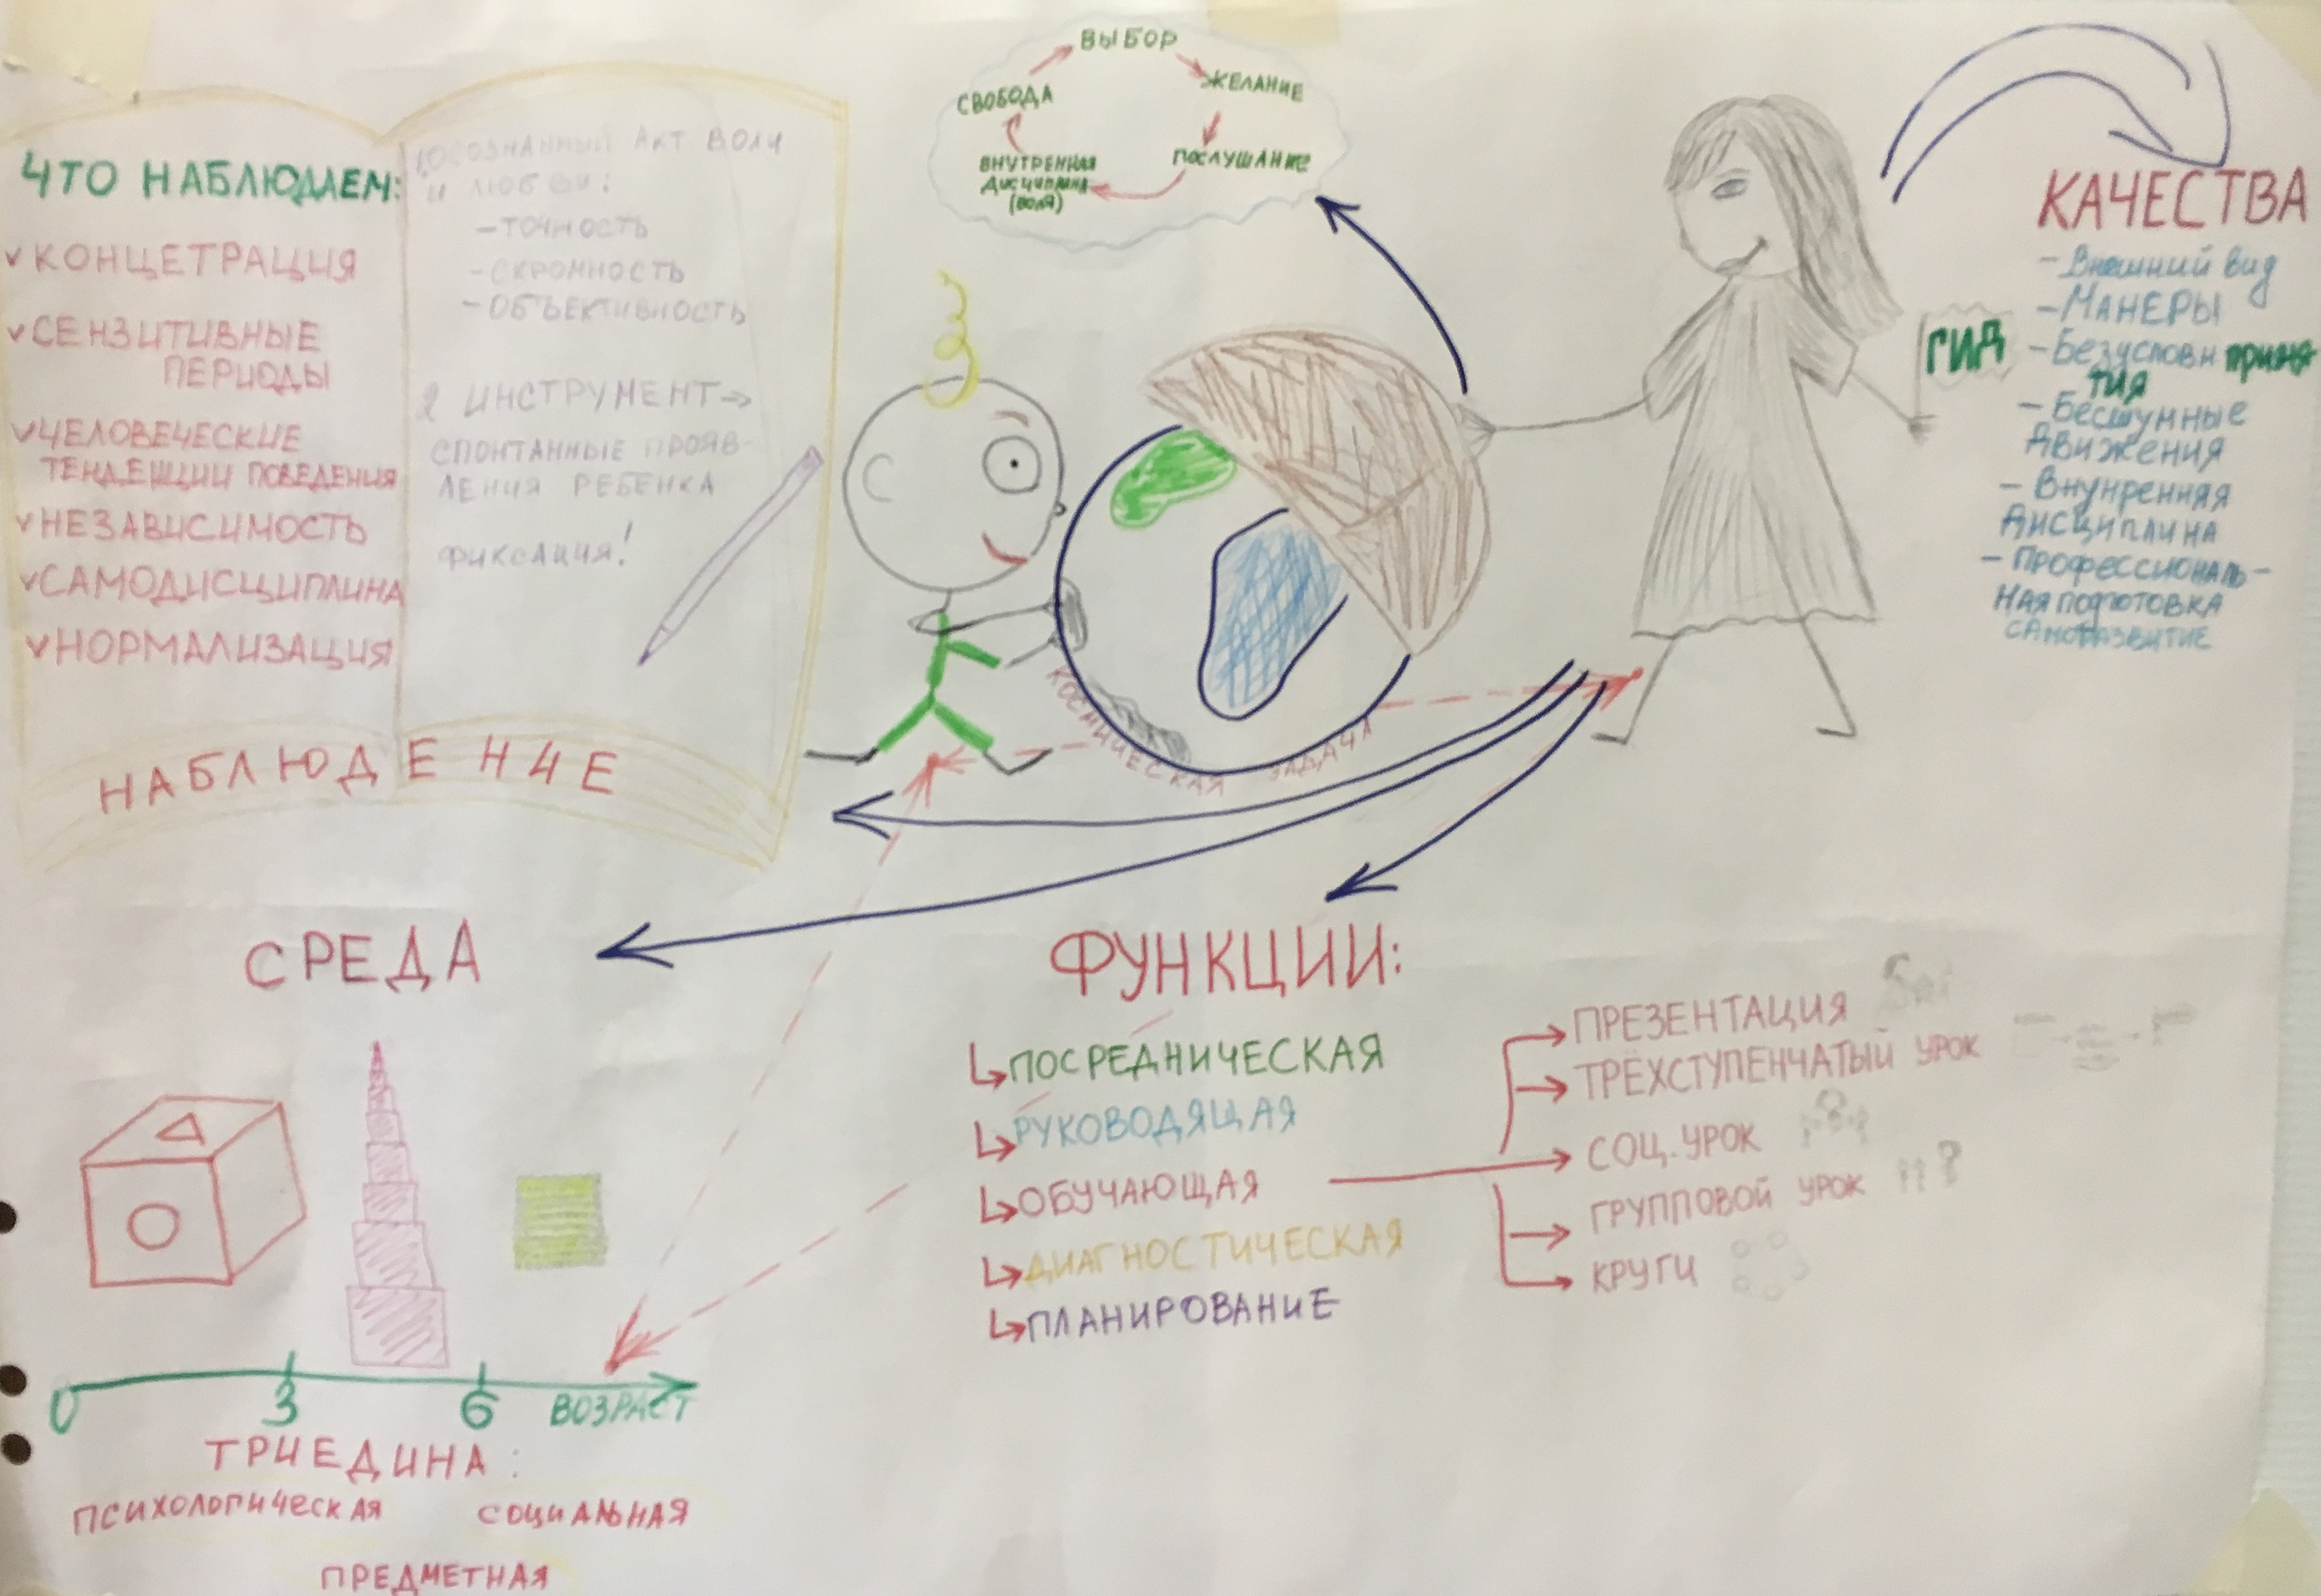 ЧТО НАБЛЮДАЕМ:
КОНЦЕТРАЦИЯ
СЕНЗИТИВНЫЕ
ПЕРИОДЫ
ЧЕЛОВЕЧЕСКИЕ
ТЕНДЕНЦИИ ПОВЕДЕНИЯ
НЕЗАВИСИМОСТЬ
САМОДИСЦИПЛИНА
НОРМАЛИЗАЦИЯ
ОСОЗНАННЫЙ АКТ ВОЛИ
И ЛЮБВИ:
-ТОЧНОСТЬ
-СКРОМНОСТЬ
-ОБЪЕКТИВНОСТЬ
2 ИНСТРУМЕНТ→
СПОНТАННЫЕ ПРОЯВ-
ЛЕНИЯ РЕБЕНКА
ФИКСАЦИЯ!
НАБЛЮДЕНИЕ
ВЫБОР
ЖЕЛАНИЕ
ПОСЛУШАНИЕ
ВНУТРЕННЯЯ
ДИСЦИПЛИНА
(ВОЛЯ)
СВОБОДА
КОСМИЧЕСКАЯ ЗАДАЧА
ГИД
КАЧЕСТВА
-Внешний вид
-МАНЕРЫ
-Безусловн приня
тия
-Бесшумные
движения
-Внунренняя
дисциплина
-Профессиональ-
ная подготовка
САМОРАЗВИТИЕ
СРЕДА
0 3 6 ВОЗРАСТ
ТРИЕДИНА:
ПСИХОЛОГИЧЕСКАЯ СОЦИАЛЬНАЯ
ПРЕДМЕТНАЯ
ФУНКЦИИ:
ПОСРЕДНИЧЕСКАЯ
РУКОВОДЯЩАЯ
ОБУЧАЮЩАЯ
ДИАГНОСТИЧЕСКАЯ
ПЛАНИРОВАНИЕ
ПРЕЗЕНТАЦИЯ
ТРЁХСТУПЕНЧАТЫЙ УРОК
СОЦ. УРОК
ГРУППОВОЙ УРОК
КРУГИ